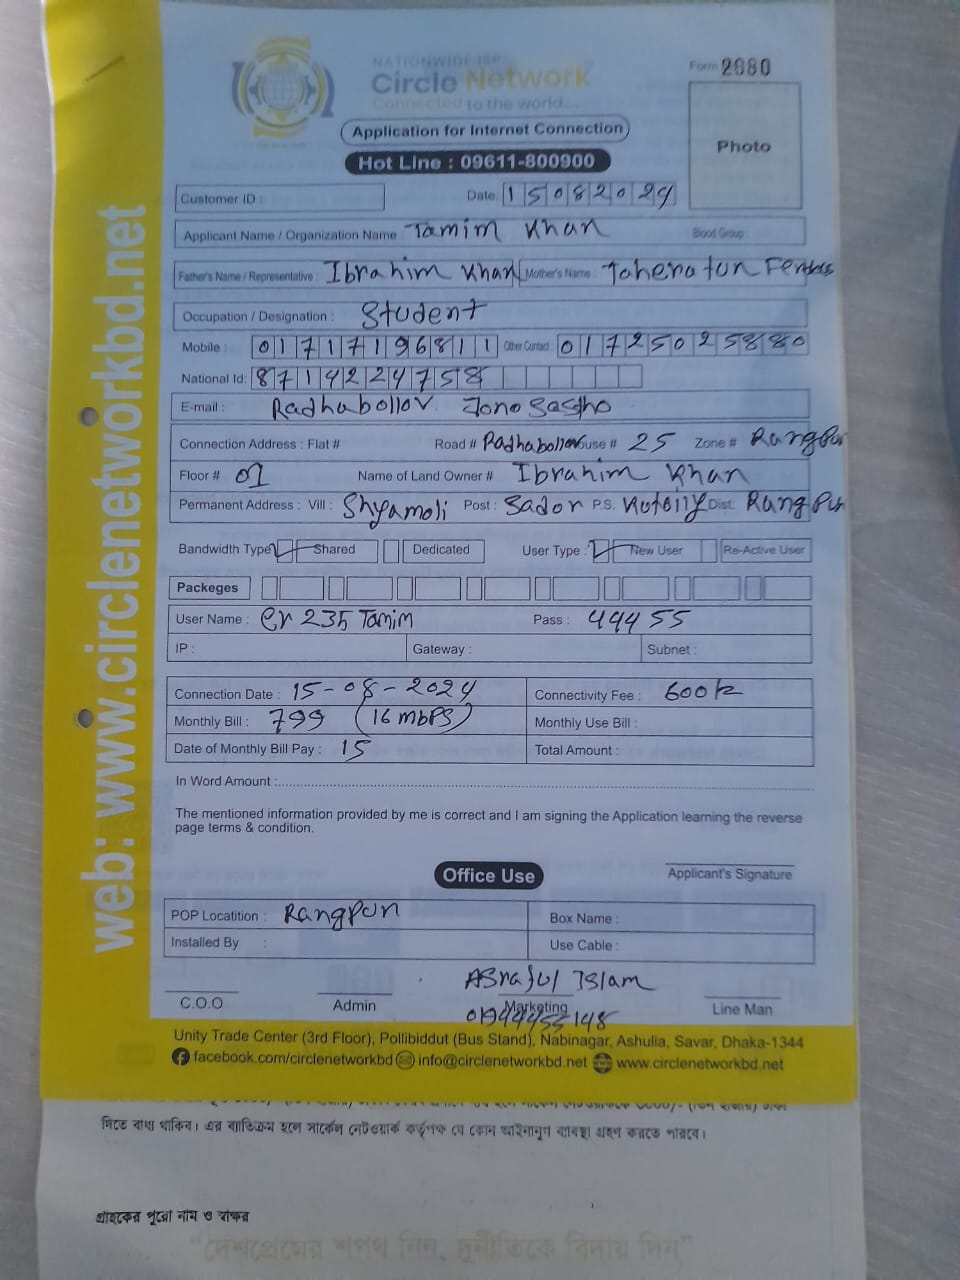 NATIONWIDE ISP
Circle Network
Connected to the world...
Form 2980
Application for Internet Connection
Photo
Hot Line : 09611-800900
Customer ID :
Date: 15082024
Applicant Name / Organization Name : Tamim Khan Blood Group :
Father's Name / Representative : Ibrahim Khan Mother's Name :
Occupation / Designation : Student
Mobile : 01717196811 Other Contact : 01725025880
National Id: 8714224758
E-mail : Radhabollov
Connection Address : Flat # Road # Radhabollov House # 25 Zone # Rangpur
Floor # 01 Name of Land Owner # Ibrahim Khan
Permanent Address : Vill : Shyamoli Post : Sador P.S. Dist: Rangpur
Bandwidth Type Shared Dedicated User Type : New User Re-Active User
Packeges
User Name : 235 Tamim Pass : 44455
IP : Gateway : Subnet :
Connection Date : 15-08-2024 Connectivity Fee : 600
Monthly Bill : 799 (16 mbPS) Monthly Use Bill :
Date of Monthly Bill Pay : 15 Total Amount :
In Word Amount :
The mentioned information provided by me is correct and I am signing the Application learning the reverse
page terms & condition.
Office Use
Applicant's Signature
POP Locatition : Rangpur Box Name :
Installed By : Use Cable :
Asraful Islam
C.O.O Admin Marketing Line Man
Unity Trade Center (3rd Floor), Pollibiddut (Bus Stand), Nabinagar, Ashulia, Savar, Dhaka-1344
facebook.com/circlenetworkbd info@circlenetworkbd.net www.circlenetworkbd.net
web: www.circlenetworkbd.net
দিতে বাধ্য থাকিব। এর ব্যতিক্রম হলে সার্কেল নেটওয়ার্ক কর্তৃপক্ষ যে কোন আইনানুগ ব্যবস্থা গ্রহণ করতে পারবে।
গ্রাহকের পুরো নাম ও স্বাক্ষর
“দেশপ্রেমের শপথ নিন, দুর্নীতিকে বিদায় দিন”